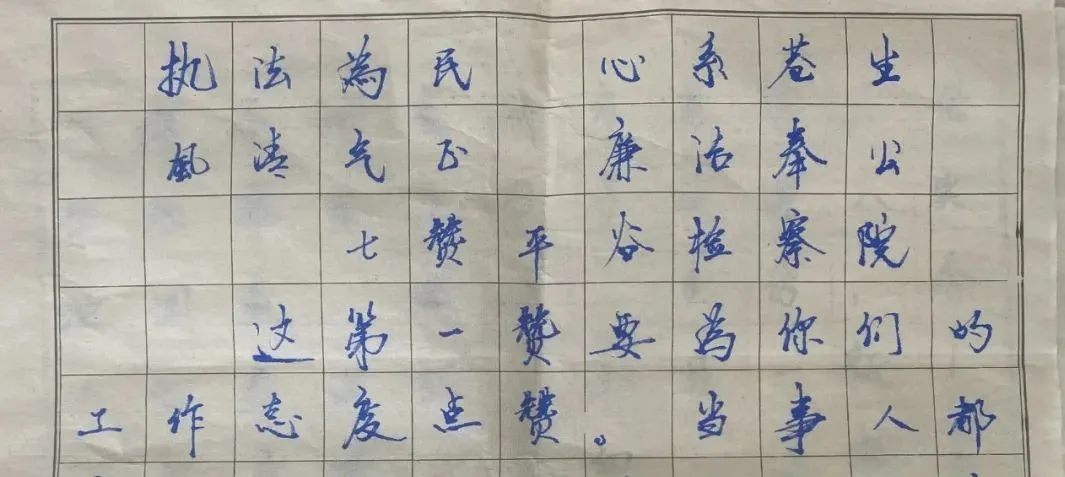 执法為民 心系苍生
風清气正 廉洁奉公
七赞平谷检察院
这第一赞要为你们的
工作态度点赞。当事人都